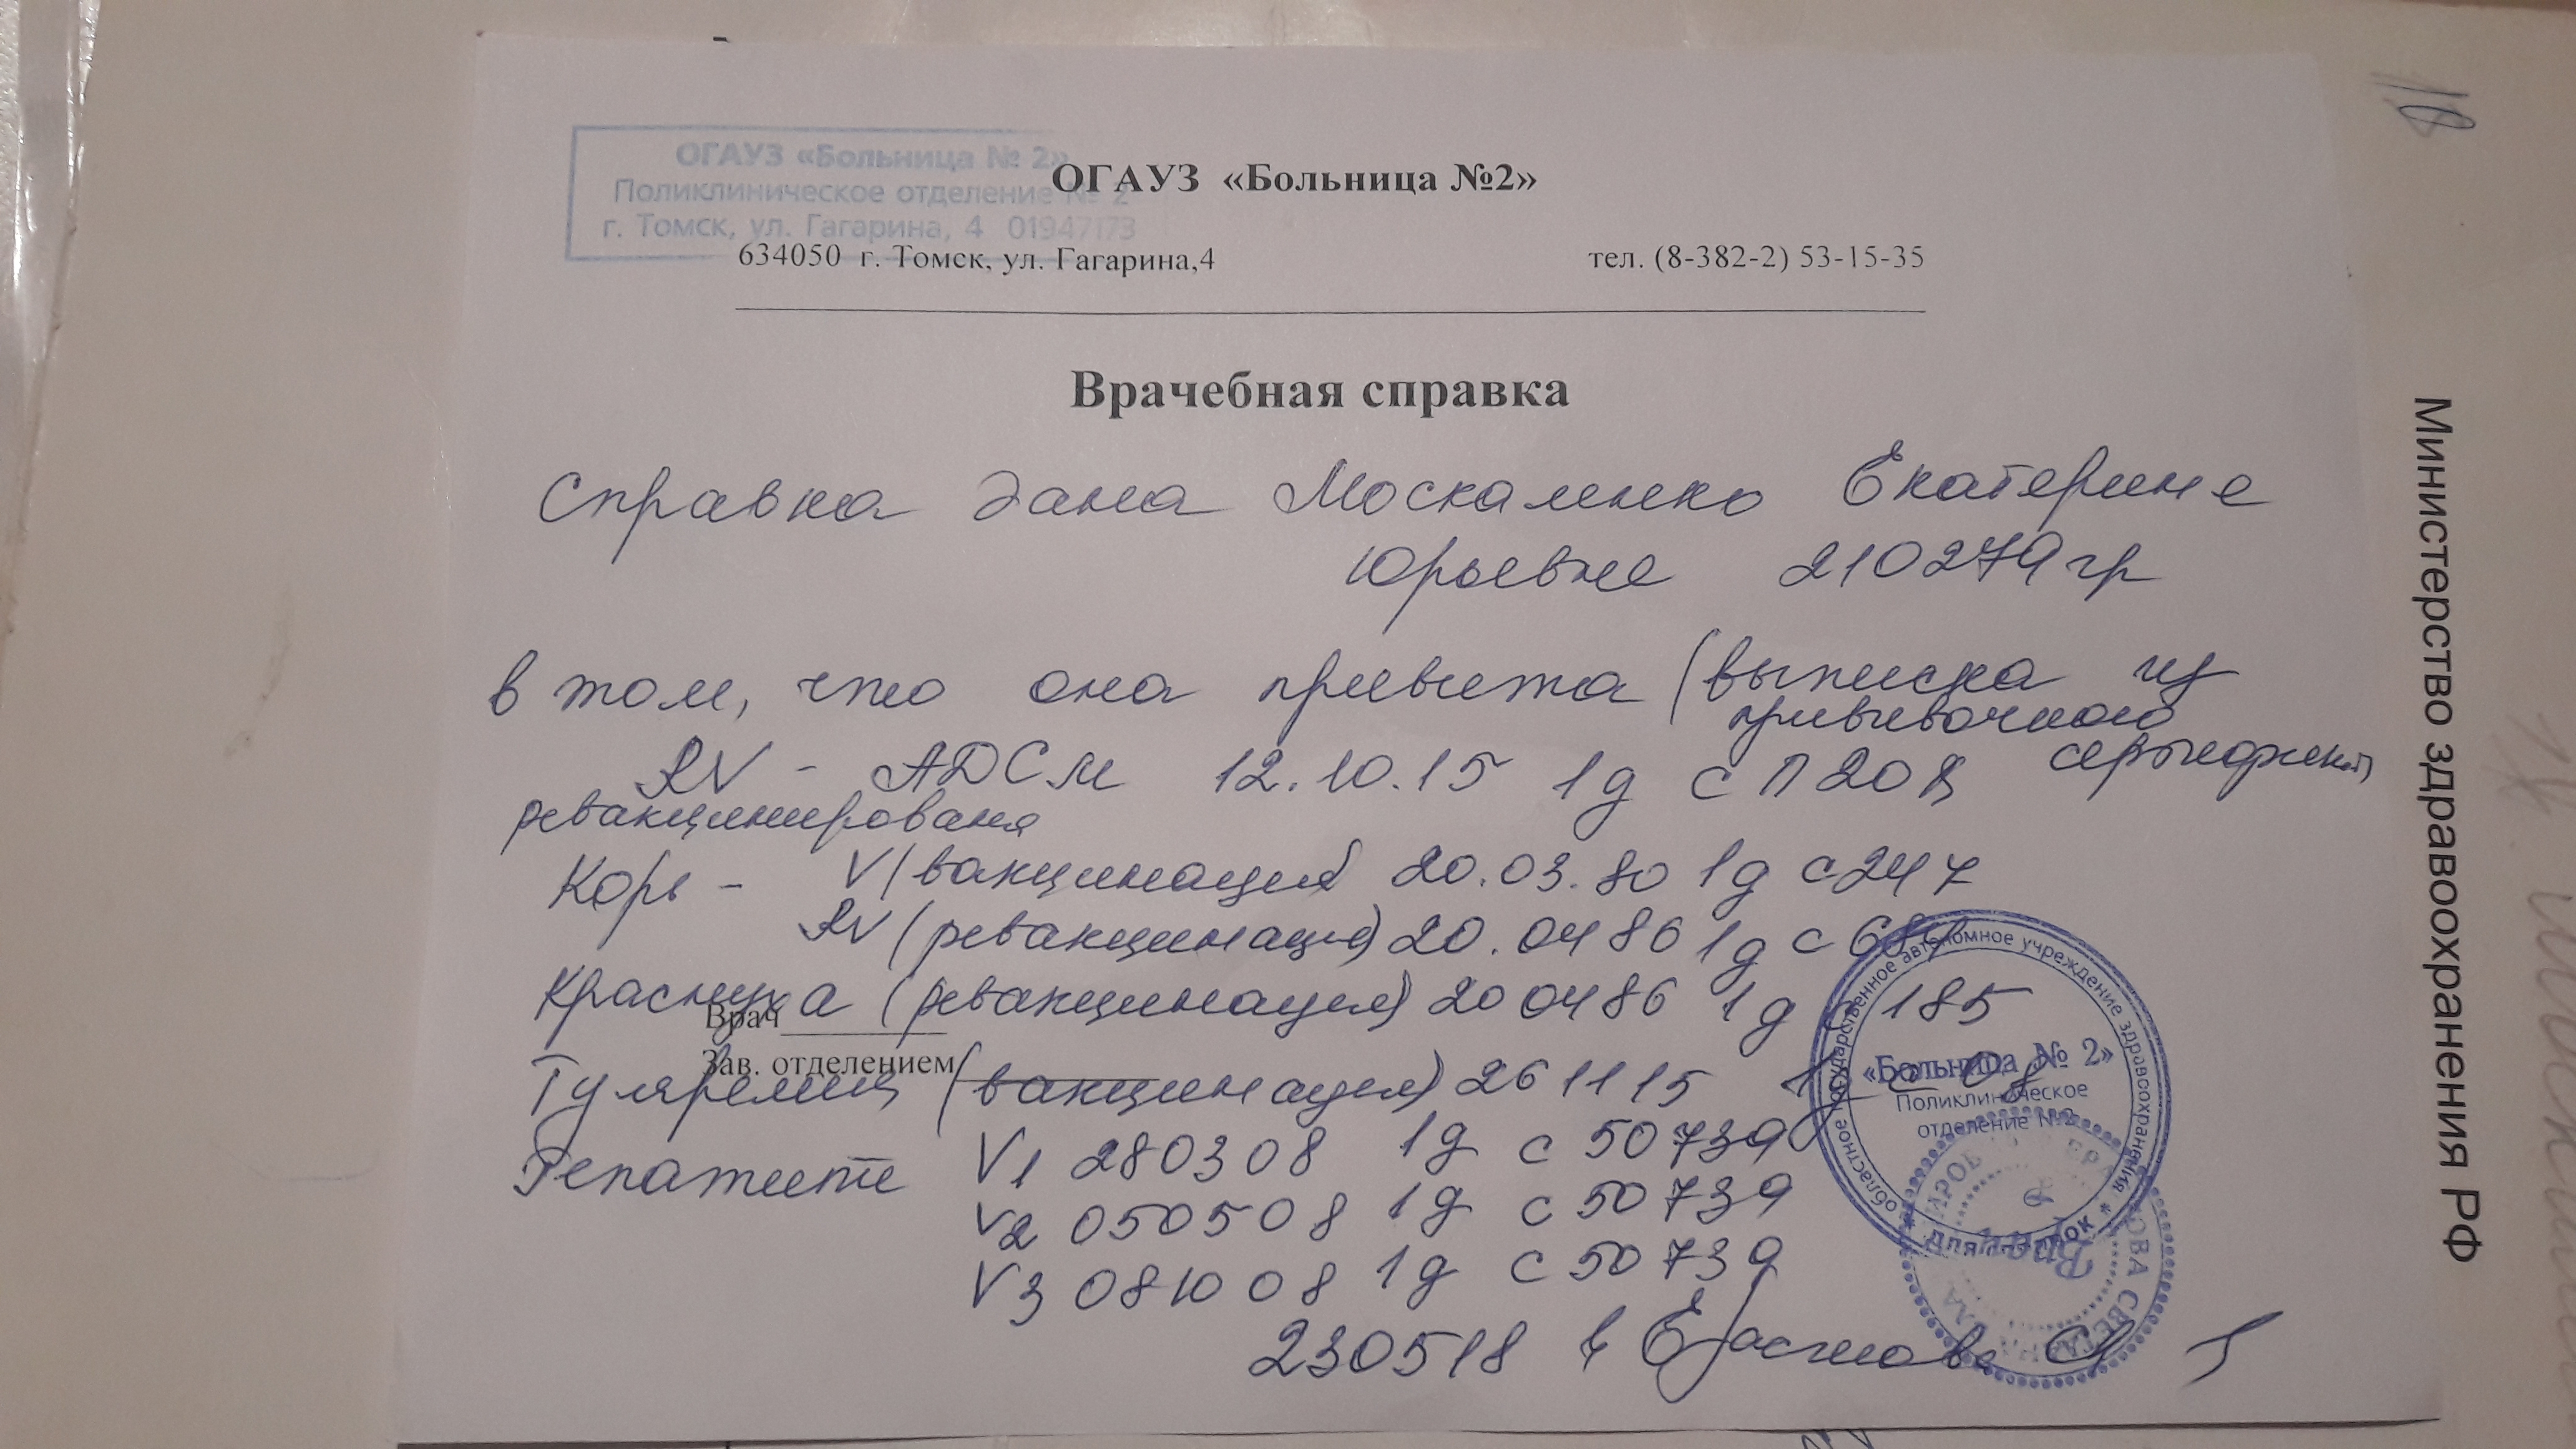 ОГАУЗ «Больница № 2»
Поликлиническое отделение № 2
г. Томск, ул. Гагарина, 4 01947173
ОГАУЗ «Больница №2»
634050 г. Томск, ул. Гагарина,4 тел. (8-382-2) 53-15-35
Врачебная справка
Справка дана Москаленко Екатерине
Юрьевне 210279 гр
в том, что она привита (выписка из
прививочного
сертификата)
RV - АДСм 12.10.15 1д с П20
ревакцинирована
Корь - V (вакцинация) 20.03.80 1д с247
RV (ревакцинация) 20.04 86 1д с
Краснуха (ревакцинация) 20 04 86 1д с 185
Врач
Зав. отделением
Туляремия (вакцинация) 26 11 15 1д с 08
Гепатит V1 280308 1д с 50739
V2 050508 1д с 50739
V3 081008 1д с 50739
230518
областное государственное автономное учреждение здравоохранения
«Больница № 2»
Поликлиническое
отделение № 2
* для справок *
Врач
Министерство здравоохранения РФ